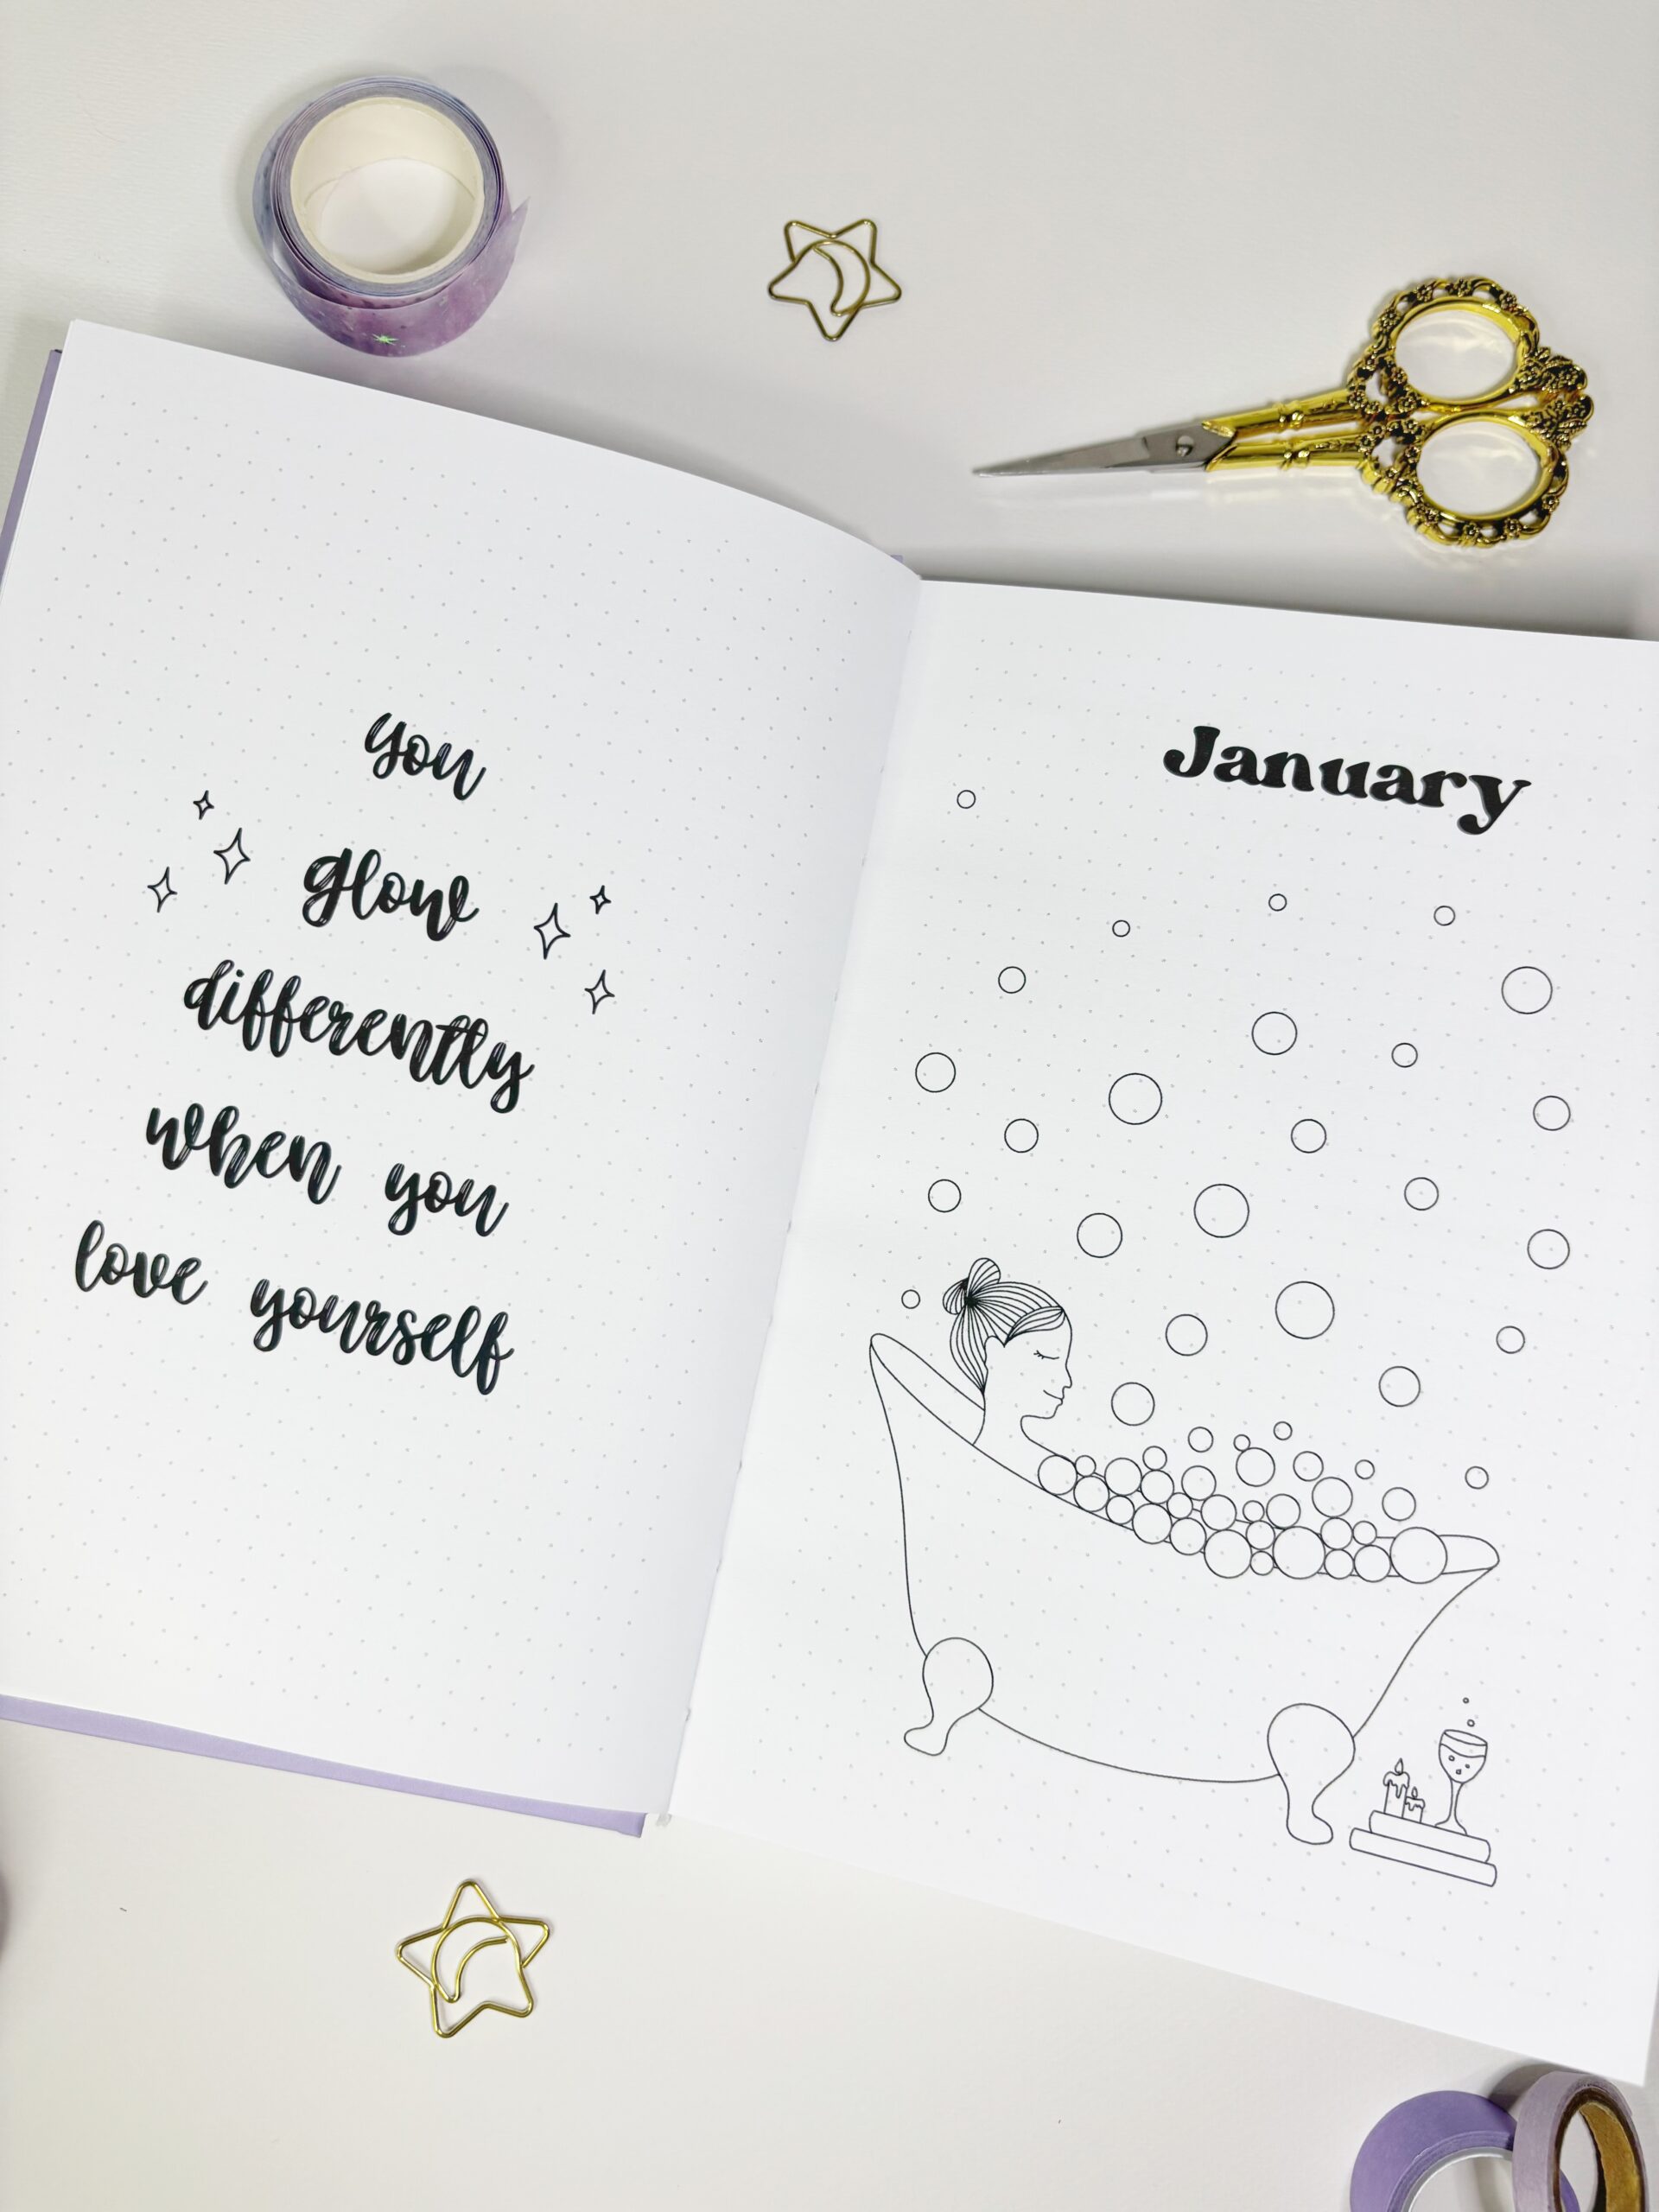 you
glow
differently
when you
love yourself
January